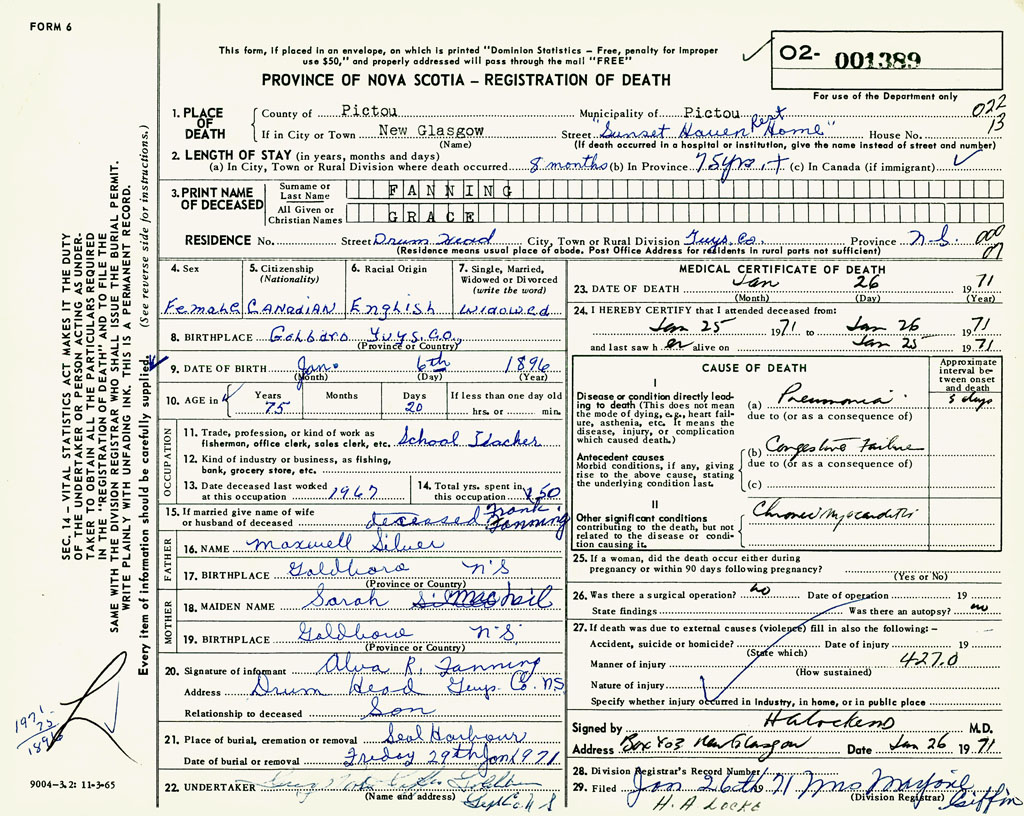 FORM 6
This form, if placed in an envelope, on which is printed "Dominion Statistics – Free, penalty for improper
use $50," and properly addressed will pass through the mail "FREE"
PROVINCE OF NOVA SCOTIA – REGISTRATION OF DEATH
O2- 001389
For use of the Department only
022
13
1. PLACE OF DEATH
County of Pictou Municipality of Pictou
If in City or Town New Glasgow Street "Sunset Haven Rest Home" House No.
(Name) (If death occurred in a hospital or institution, give the name instead of street and number)
2. LENGTH OF STAY (in years, months and days)
(a) In City, Town or Rural Division where death occurred 8 months (b) In Province 75 yrs. + (c) In Canada (if immigrant)
3. PRINT NAME OF DECEASED
Surname or Last Name FANNING
All Given or Christian Names GRACE
RESIDENCE No. Street Drum Head City, Town or Rural Division Guys. Co. Province N.S. 000
07
(Residence means usual place of abode. Post Office Address for residents in rural parts not sufficient)
4. Sex Female
5. Citizenship (Nationality) Canadian
6. Racial Origin English
7. Single, Married, Widowed or Divorced (write the word) widowed
8. BIRTHPLACE Goldboro Guys. Co.
(Province or Country)
9. DATE OF BIRTH Jan. 6th 1896
(Month) (Day) (Year)
10. AGE in Years 75 Months Days 20 If less than one day old
hrs. or min.
OCCUPATION
11. Trade, profession, or kind of work as
fisherman, office clerk, sales clerk, etc. School Teacher
12. Kind of industry or business, as fishing,
bank, grocery store, etc.
13. Date deceased last worked
at this occupation 1967
14. Total yrs. spent in
this occupation 50
15. If married give name of wife
or husband of deceased deceased Frank Fanning
FATHER
16. NAME Maxwell Silver
17. BIRTHPLACE Goldboro N'S
(Province or Country)
MOTHER
18. MAIDEN NAME Sarah
19. BIRTHPLACE Goldboro N'S'
(Province or Country)
20. Signature of informant Alva R. Fanning
Address Drum Head Guys. Co. NS
Relationship to deceased Son
21. Place of burial, cremation or removal Seal Harbour
Date of burial or removal Friday 29th Jan 1971
22. UNDERTAKER
(Name and address)
MEDICAL CERTIFICATE OF DEATH
23. DATE OF DEATH Jan 26 1971
(Month) (Day) (Year)
24. I HEREBY CERTIFY that I attended deceased from:
Jan 25 1971 to Jan 26 1971
and last saw her alive on Jan 25 1971
CAUSE OF DEATH
Approximate interval between onset and death
I
Disease or condition directly leading to death (This does not mean the mode of dying, e.g., heart failure, asthenia, etc. It means the disease, injury, or complication which caused death.)
(a) Pneumonia 5 days
due to (or as a consequence of)
Antecedent causes
Morbid conditions, if any, giving rise to the above cause, stating the underlying condition last.
(b) Congestive Failure
due to (or as a consequence of)
(c)
II
Other significant conditions
contributing to the death, but not related to the disease or condition causing it.
Chronic Myocarditis
25. If a woman, did the death occur either during
pregnancy or within 90 days following pregnancy?
(Yes or No)
26. Was there a surgical operation? no Date of operation 19
State findings Was there an autopsy? no
27. If death was due to external causes (violence) fill in also the following: –
Accident, suicide or homicide? Date of injury 19
(State which)
Manner of injury 427.0
(How sustained)
Nature of injury
Specify whether injury occurred in industry, in home, or in public place
Signed by M.D.
Address Box 403 New Glasgow Date Jan 26 1971
28. Division Registrar's Record Number
29. Filed Jan 26th 1971 Mrs Marjorie Giffin
(Division Registrar)
H. A LOCKE
SEC. 14 – VITAL STATISTICS ACT MAKES IT THE DUTY
OF THE UNDERTAKER OR PERSON ACTING AS UNDER-
TAKER TO OBTAIN ALL THE PARTICULARS REQUIRED
IN THE "REGISTRATION OF DEATH" AND TO FILE THE
SAME WITH THE DIVISION REGISTRAR WHO SHALL ISSUE THE BURIAL PERMIT.
WRITE PLAINLY WITH UNFADING INK. THIS IS A PERMANENT RECORD.
Every item of information should be carefully supplied. (See reverse side for instructions.)
1971
75
1896
9004–3.2: 11-3-65